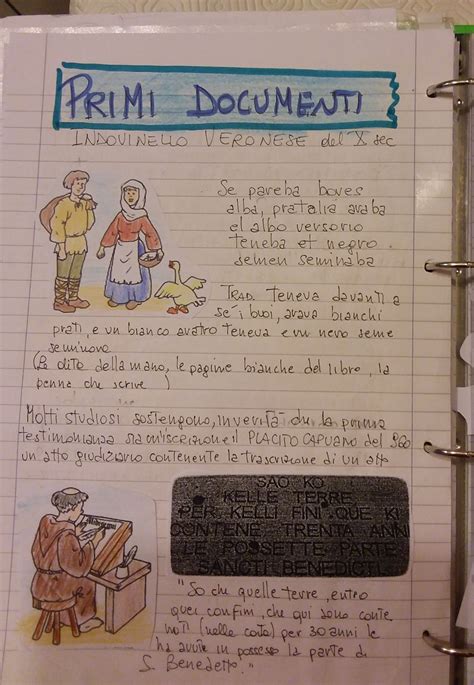 PRIMI DOCUMENTI
INDOVINELLO VERONESE del X sec
Se pareba boves
alba, pratalia araba
el albo versorio
teneba et negro
semen seminaba
TRAD. Teneva davanti a
se' i buoi, arava bianchi
prati, e un bianco aratro teneva e un nero seme
seminava
(Le dita della mano, le pagine bianche del libro, la
penna che scrive)
Molti studiosi sostengono, in verità che la prima
testimonianza sia un'iscrizione il PLACITO CAPUANO del 960
un atto giudiziario contenente la trascrizione di un atto
SAO KO
KELLE TERRE
PER KELLI FINI QUE KI
CONTENE TRENTA ANNI
LE POSSETTE PARTE
SANCTI BENEDICTI
"So che quelle terre, entro
quei confini, che qui sono conte
nuti (nelle carte) per 30 anni le
ha avute in possesso la parte di
S. Benedetto."